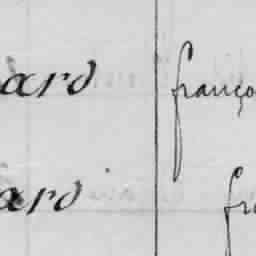 ard franço
ard fr